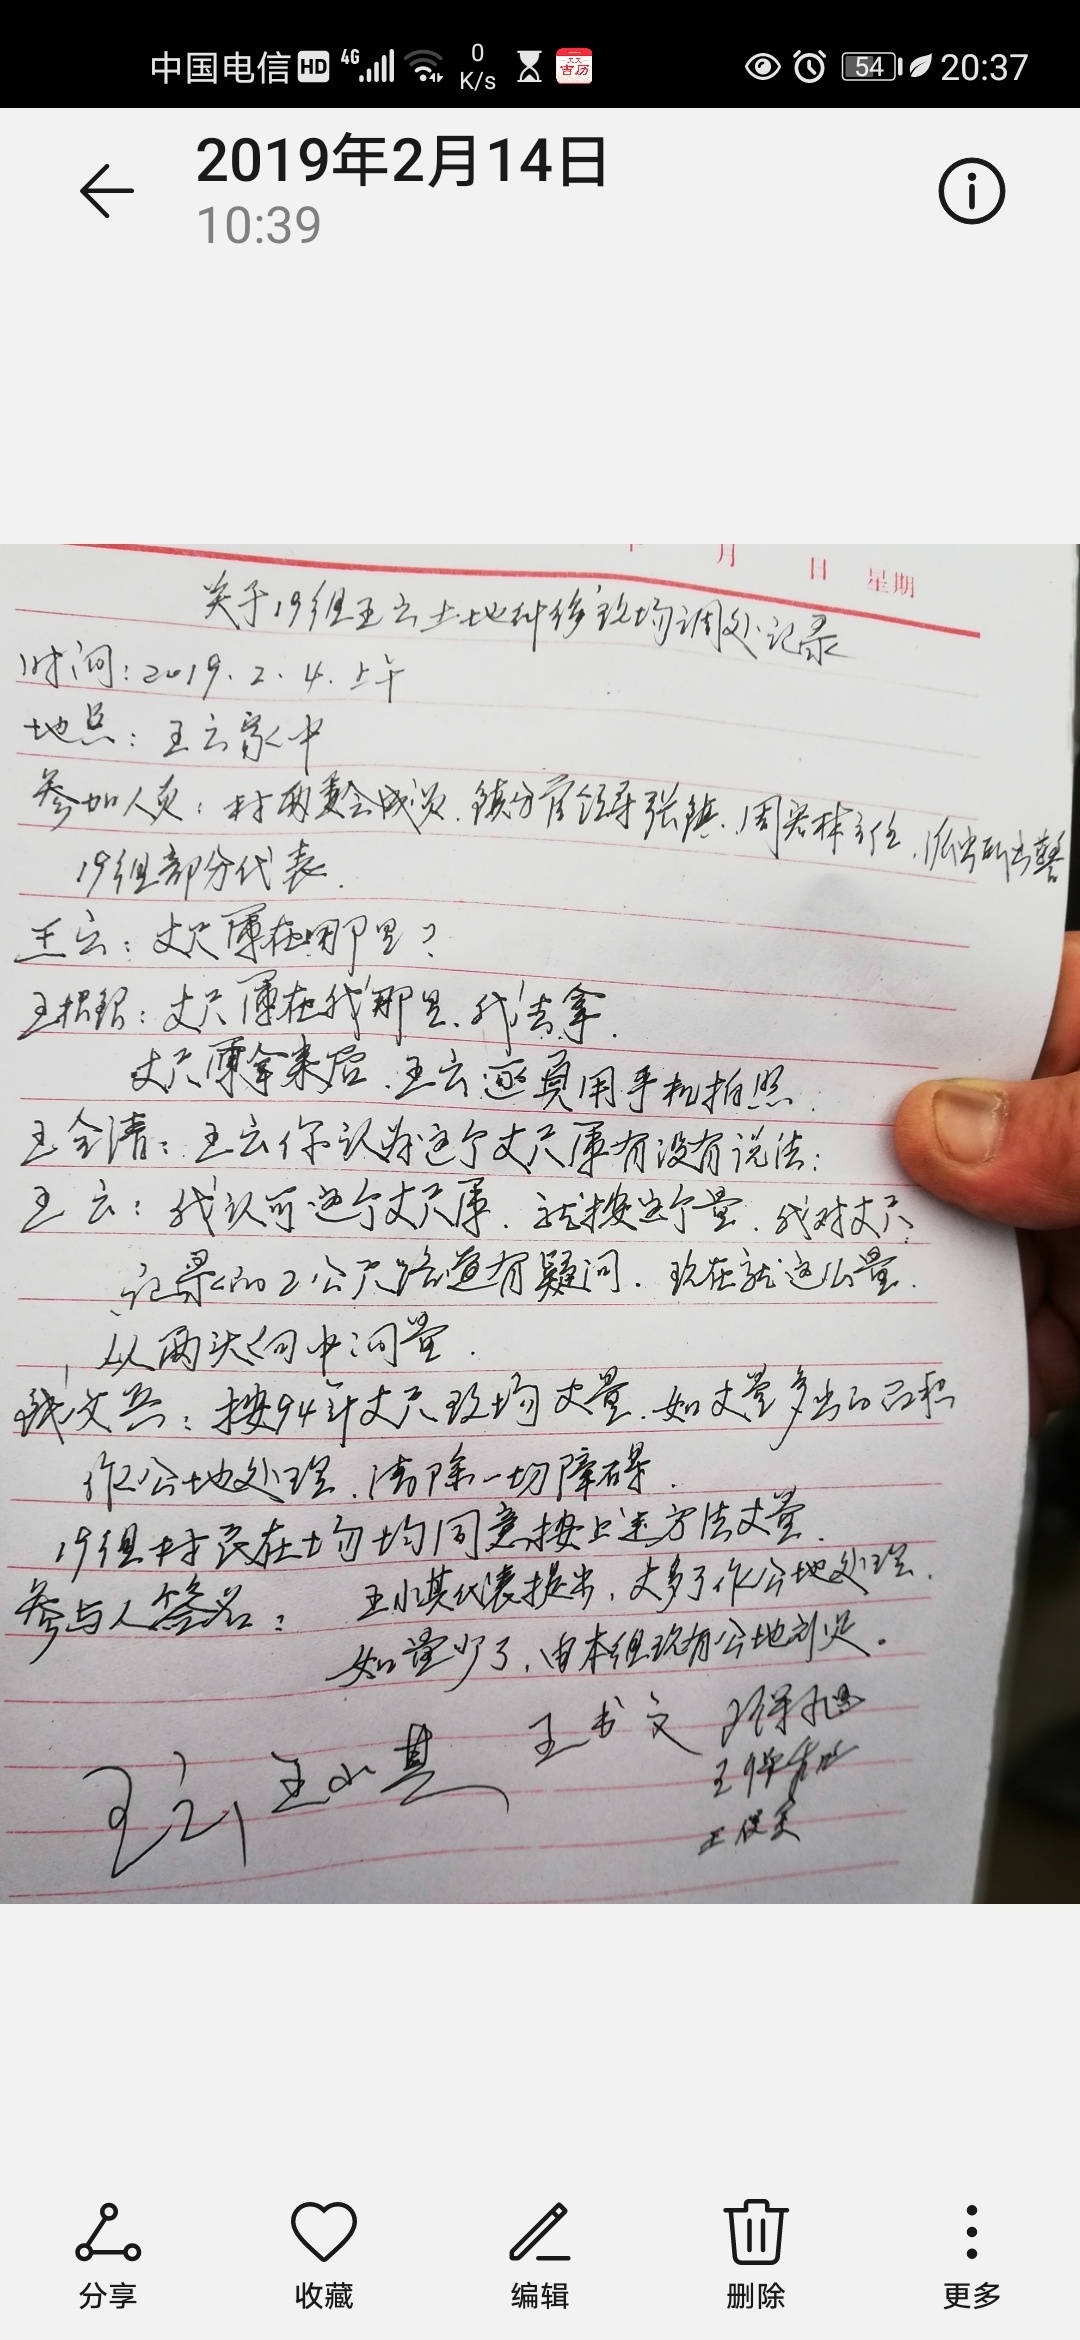 中国电信 HD 4G 0 K/s 吉历 54 20:37
2019年2月14日
10:39
月 日 星期
关于19组王云土地纠纷现场调处记录
时间:2019.2.4.上午
地点:王云家中
参加人员:村两委会成员.镇分管领导张镇.周 林主任.派出所出警
19组部分代表.
王云:丈尺簿在哪里?
王根银:丈尺簿在我那里.我去拿.
丈尺簿拿来后.王云逐页用手机拍照.
王全清:王云你认为这个丈尺簿有没有说法:
王云:我认可这个丈尺簿.就按这个量.我对丈尺
记录的2公尺路道有疑问.现在就这么量.
从两头向中间量.
钱文兵:按94年丈尺现场丈量.如丈量多出的面积
作公地处理.清除一切障碍.
19组村民在场均同意按上述方法丈量.
参与人签名: 王小其代表提出,丈多了作公地处理.
如量少了,由本组现有公地划足。
王云 王小其 王书文
分享 收藏 编辑 删除 更多